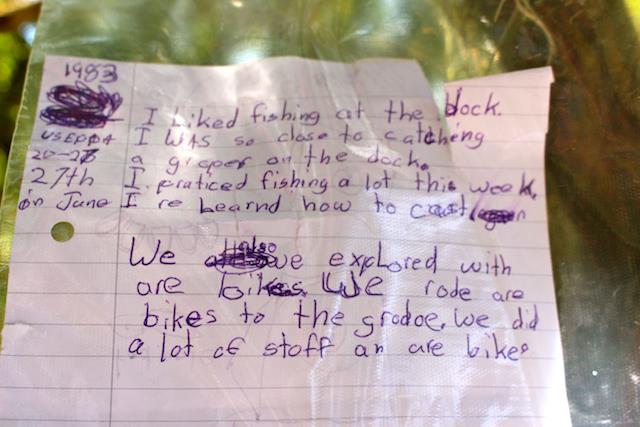 1983
I Liked fishing at the dock.
USEPPA I WAS so close to catching
20-27 a groper on the dock.
27th I praticed fishing a lot this week.
in June I re Learnd how to cast
We also we explored with
are bikes We rode are
bikes to the grodoe. We did
a lot of stoff an are bikes